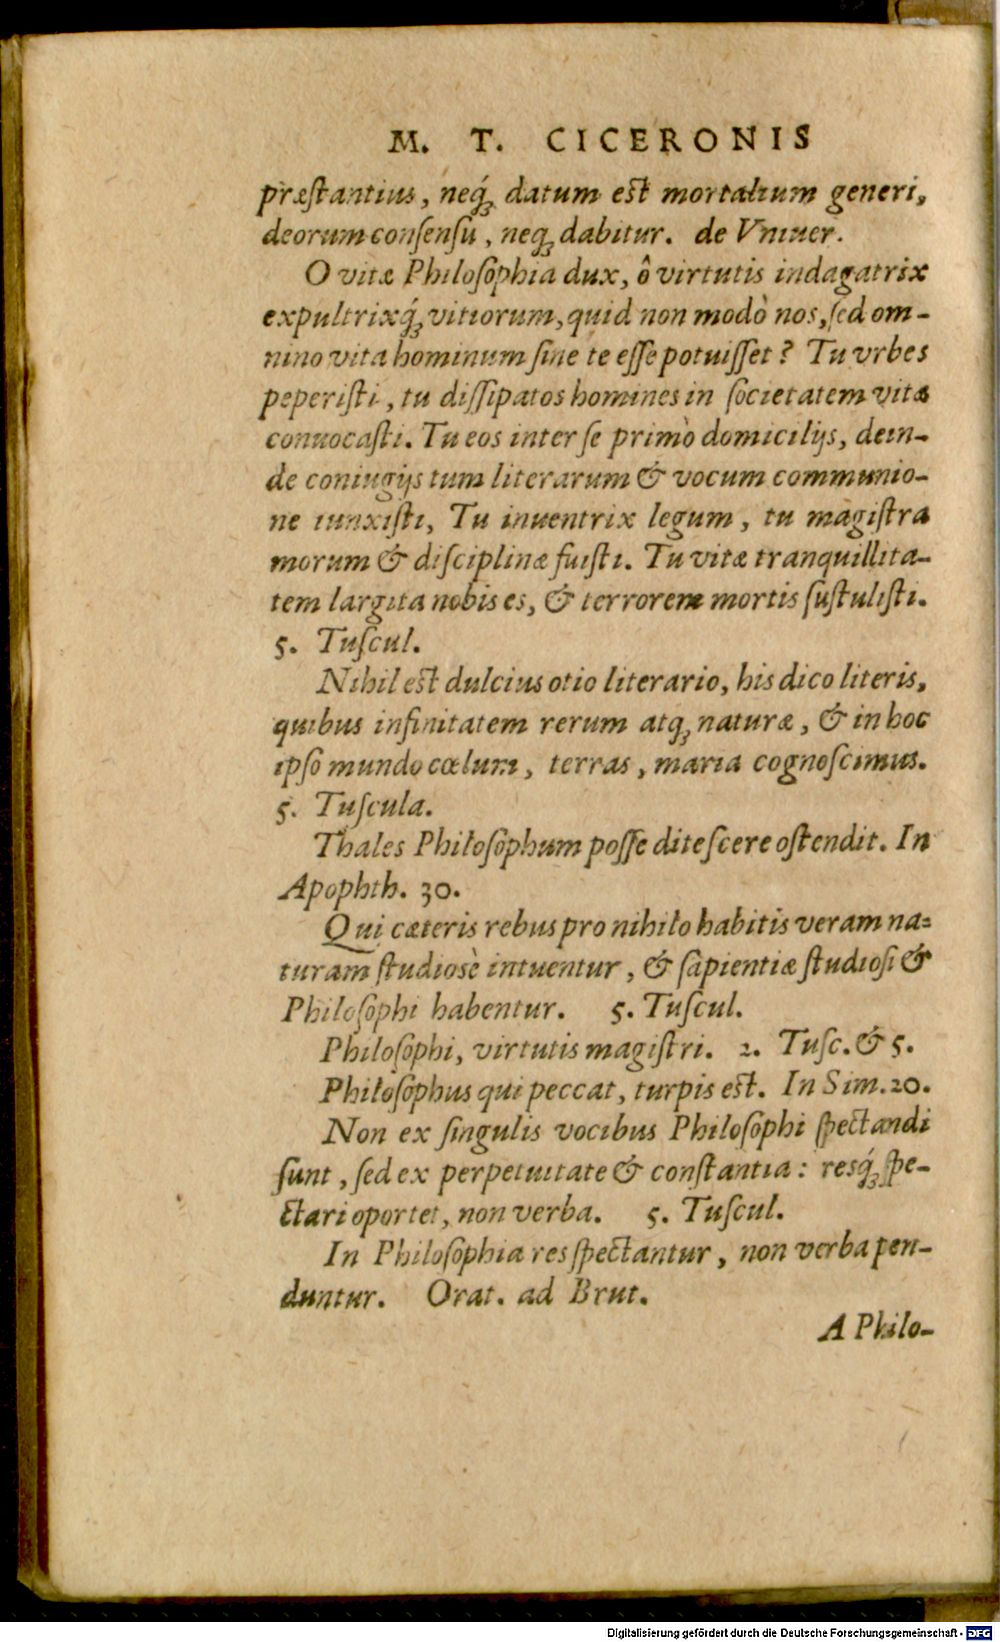 M. T. CICERONIS
præſtantius, neq́ꝫ datum est mortalium generi,
deorum conſenſu, neqꝫ dabitur. de Vniuer.
O vitæ Philoſophia dux, ô virtutis indagatrix
expultrixq́ꝫ vitiorum, quid non modò nos, ſed om-
nino vita hominum ſine te eſſe potuiſſet? Tu vrbes
peperiſti, tu diſſipatos homines in ſocietatem vitæ
conuocaſti. Tu eos inter ſe primò domicilijs, dein-
de coniugijs tum literarum & vocum communio-
ne iunxiſti, Tu inuentrix legum, tu magiſtra
morum & diſciplinæ fuiſti. Tu vitæ tranquillita-
tem largita nobis es, & terrorem mortis ſuſtuliſti.
5. Tuſcul.
Nihil est dulcius otio literario, his dico literis,
quibus infinitatem rerum atqꝫ naturæ, & in hoc
ipſo mundo cœlum, terras, maria cognoſcimus.
5. Tuſcula.
Thales Philoſophum poſſe diteſcere oſtendit. In
Apophth. 30.
Qui cæteris rebus pro nihilo habitis veram na-
turam ſtudiosè intuentur, & ſapientiæ ſtudioſi &
Philoſophi habentur. 5. Tuſcul.
Philoſophi, virtutis magiſtri. 2. Tuſc. & 5.
Philoſophus qui peccat, turpis est. In Sim. 20.
Non ex ſingulis vocibus Philoſophi ſpectandi
ſunt, ſed ex perpetuitate & conſtantia: resq́ꝫ ſpe-
ctari oportet, non verba. 5. Tuſcul.
In Philoſophia res ſpectantur, non verba pen-
duntur. Orat. ad Brut.
A Philo-
Digitalisierung gefördert durch die Deutsche Forschungsgemeinschaft - DFG